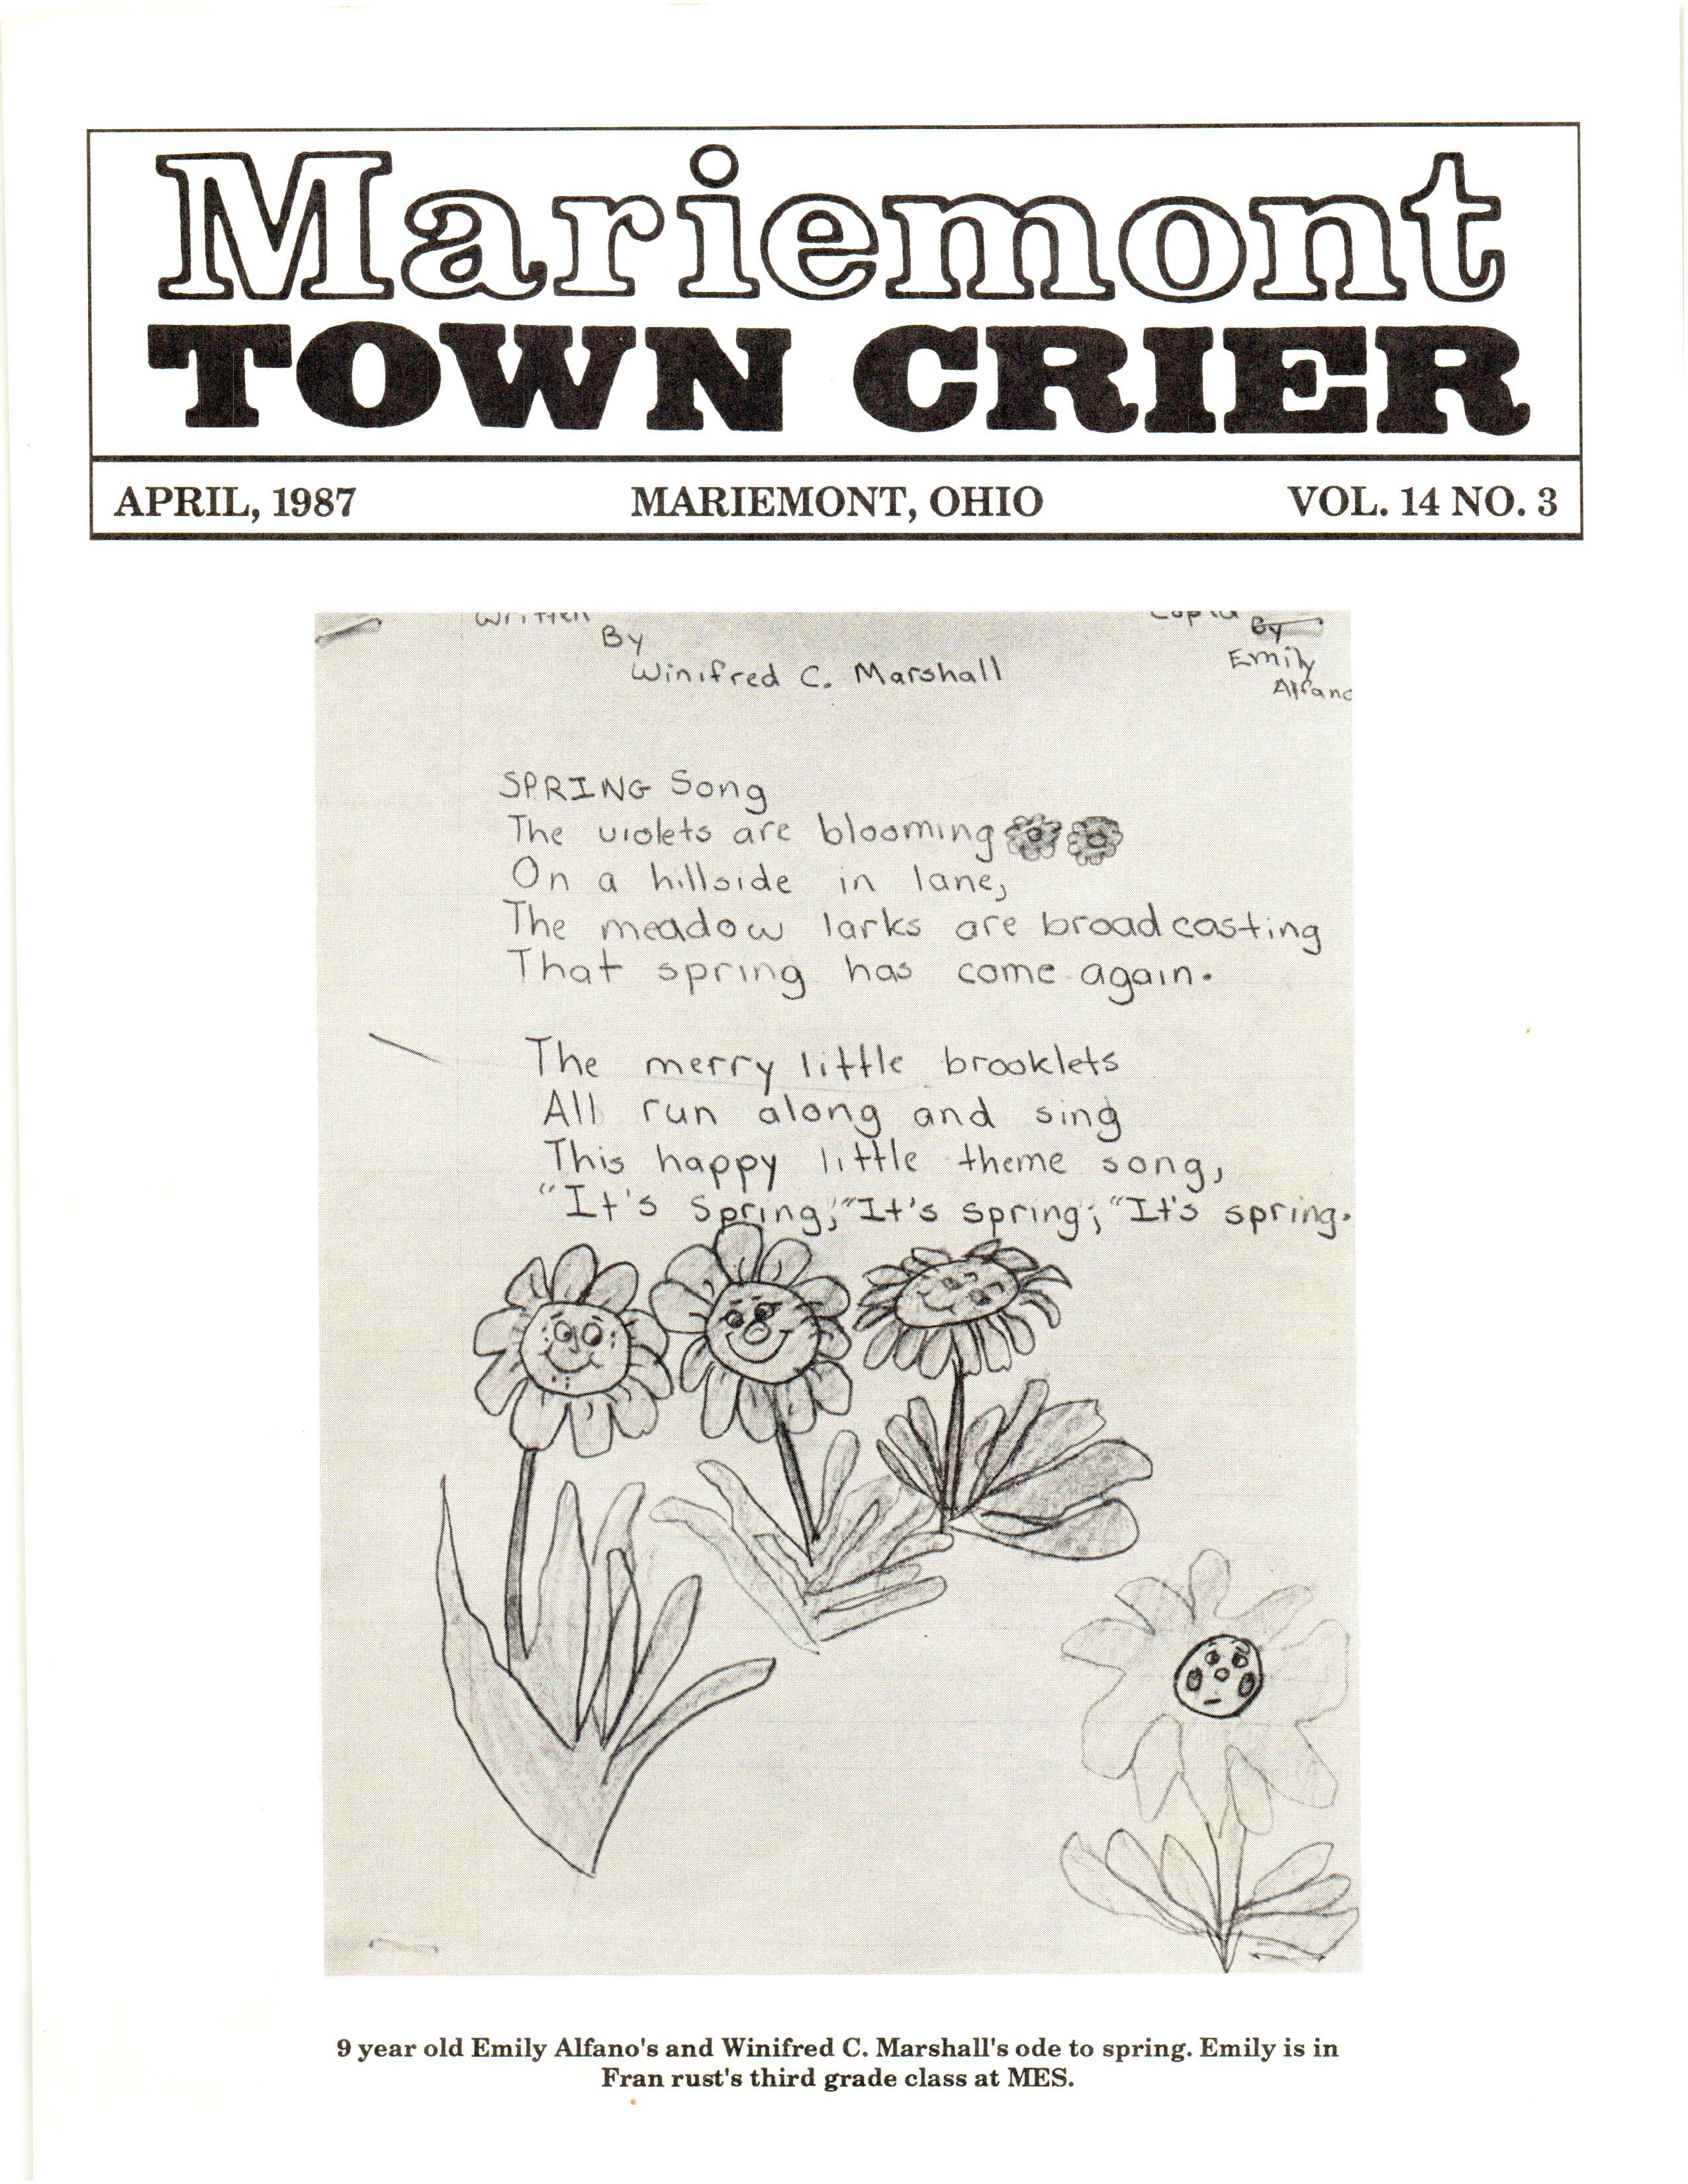 Mariemont
TOWN CRIER
APRIL, 1987 MARIEMONT, OHIO VOL. 14 NO. 3
Written
By
Winifred C. Marshall
By
Emily
Alfano
SPRING Song
The violets are blooming
On a hillside in lane,
The meadow larks are broadcasting
That spring has come again.
The merry little brooklets
All run along and sing
This happy little theme song,
"It's Spring," "It's spring", "It's spring.
9 year old Emily Alfano's and Winifred C. Marshall's ode to spring. Emily is in
Fran rust's third grade class at MES.